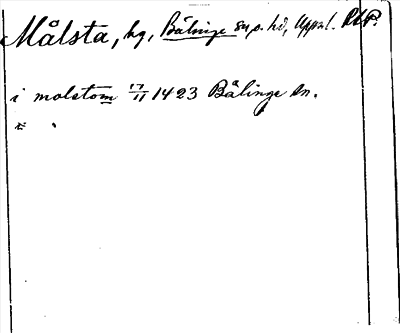 Målsta, by, Bälinge sn o. hd, Uppsal. RAP.
i molstom 17/11 1423 Bälinge sn.